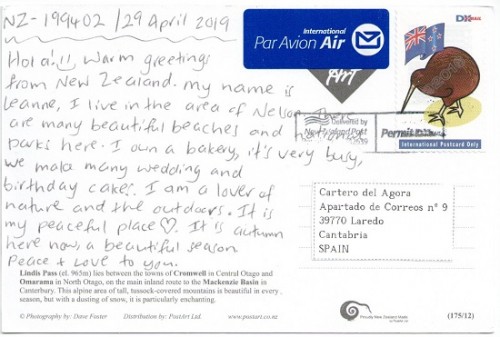 NZ-199402 / 29 April 2019
Hola!! Warm greetings
from New Zealand. my name is
Leanne, I live in the area of Nelson. There
are many beautiful beaches and
parks here. I own a bakery, it's very busy,
we make many wedding and
birthday cakes. I am a lover of
nature and the outdoors. It is
my peaceful place♡. It is autumn
here now, a beautiful season
Peace + love to you.
International
Par Avion Air
Art
DX MAIL
Delivered by
New Zealand Post
Permit
International Postcard Only
Cartero del Agora
Apartado de Correos nº 9
39770 Laredo
Cantabria
SPAIN
Lindis Pass (el. 965m) lies between the towns of Cromwell in Central Otago and
Omarama in North Otago, on the main inland route to the Mackenzie Basin in
Canterbury. This alpine area of tall, tussock-covered mountains is beautiful in every
season, but with a dusting of snow, it is particularly enchanting.
© Photography by: Dave Foster Distribution by: PostArt Ltd. www.postart.co.nz
Proudly New Zealand Made
(175/12)